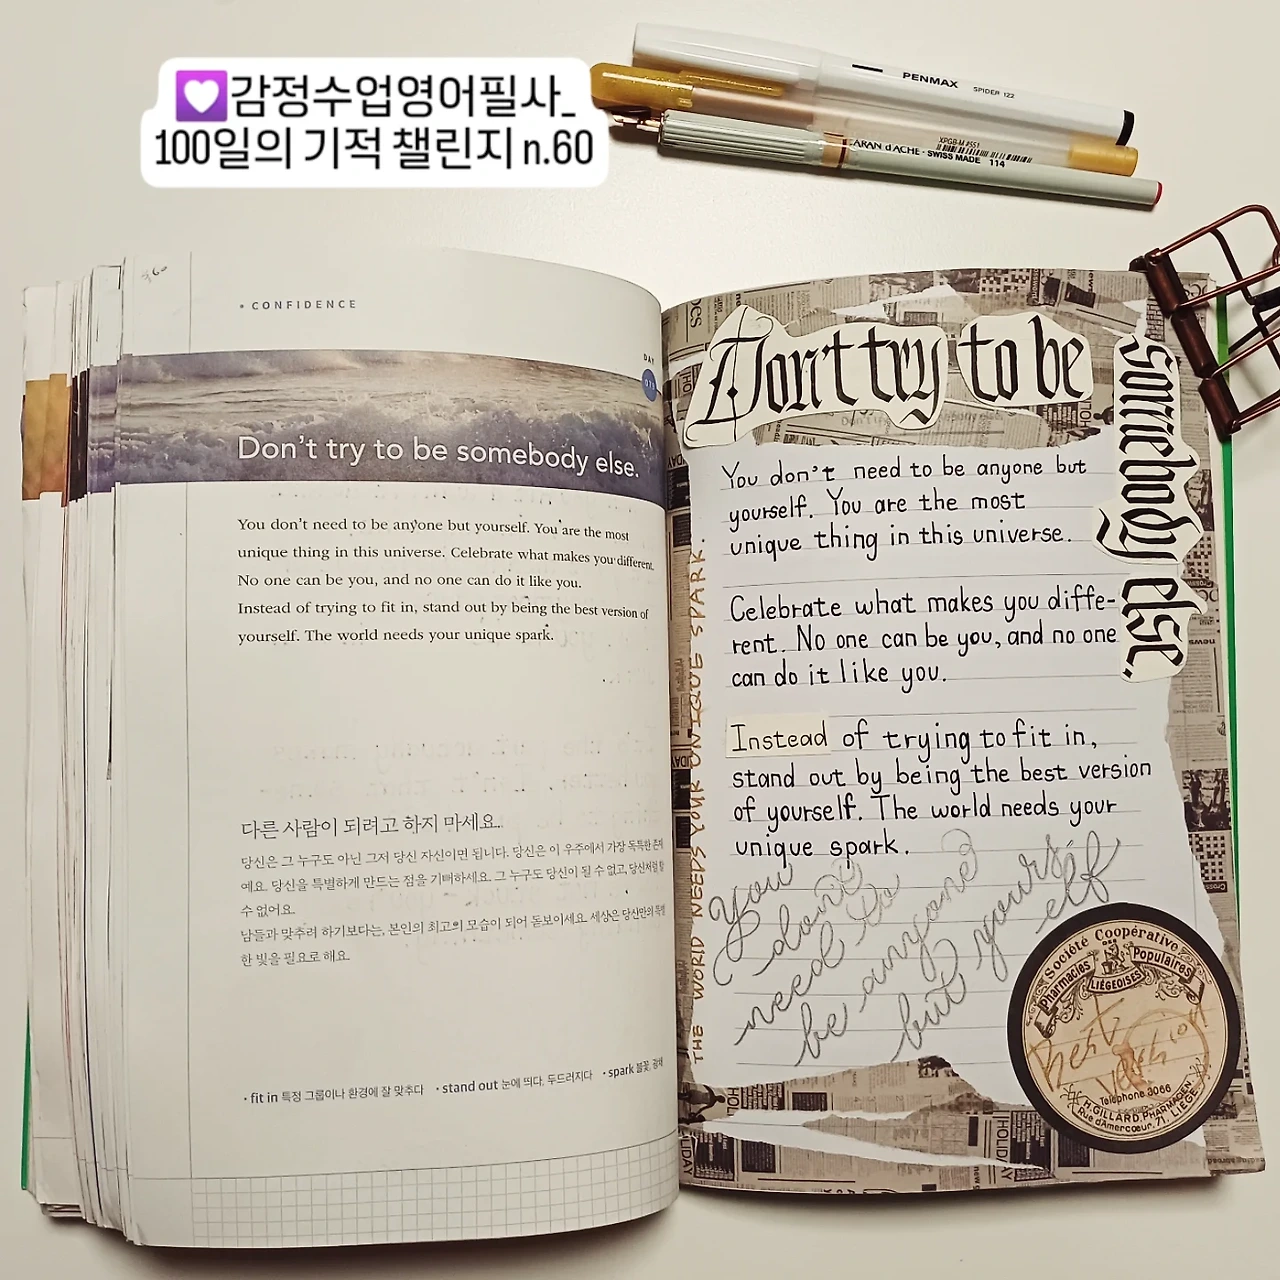 감정수업영어필사_
100일의 기적 챌린지 n.60
PENMAX SPIDER 122
XPGB-M #551
CARAN d'ACHE · SWISS MADE 114
60
• CONFIDENCE
DAY
Don't try to be somebody else.
You don't need to be anyone but yourself. You are the most
unique thing in this universe. Celebrate what makes you different.
No one can be you, and no one can do it like you.
Instead of trying to fit in, stand out by being the best version of
yourself. The world needs your unique spark.
다른 사람이 되려고 하지 마세요.
당신은 그 누구도 아닌 그저 당신 자신이면 됩니다. 당신은 이 우주에서 가장 독특한 존재
예요. 당신을 특별하게 만드는 점을 기뻐하세요. 그 누구도 당신이 될 수 없고, 당신처럼 할
수 없어요.
남들과 맞추려 하기보다는, 본인의 최고의 모습이 되어 돋보이세요. 세상은 당신만의 특별
한 빛을 필요로 해요.
• fit in 특정 그룹이나 환경에 잘 맞추다 • stand out 눈에 띄다, 두드러지다 • spark 불꽃, 광채
Don't try to be
somebody else.
You don't need to be anyone but
yourself. You are the most
unique thing in this universe.
Celebrate what makes you diffe-
rent. No one can be you, and no one
can do it like you.
Instead of trying to fit in,
stand out by being the best version
of yourself. The world needs your
unique spark.
THE WORLD NEEDS YOUR UNIQUE SPARK.
You
don't
need to
be anyone
but yourself
Société Coopérative
Pharmacies Populaires
LIÉGEOISES
Best
Version
Téléphone 3066
H. GILLARD, PHARMACIEN
Rue d'Amercoeur, 71, LIÈGE